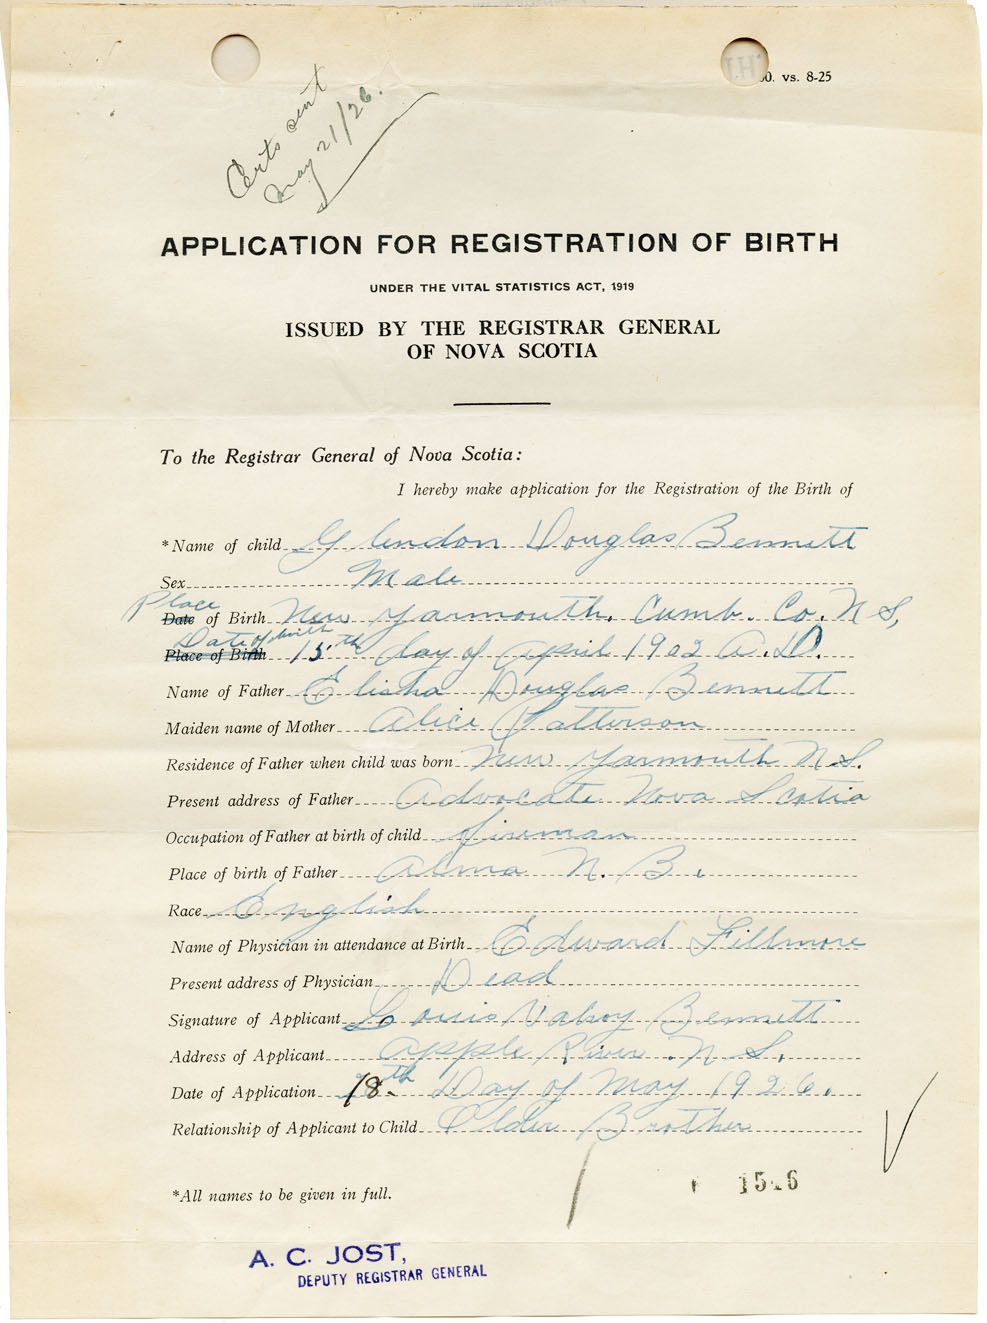 50. vs. 8-25
Certs sent
May 21/26.
APPLICATION FOR REGISTRATION OF BIRTH
UNDER THE VITAL STATISTICS ACT, 1919
ISSUED BY THE REGISTRAR GENERAL
OF NOVA SCOTIA
To the Registrar General of Nova Scotia:
I hereby make application for the Registration of the Birth of
*Name of child Glendon Douglas Bennett
Sex Male
Place
Date of Birth New Yarmouth. Cumb. Co. N S,
Date of birth
Place of Birth 15th day of April 1902 A.D.
Name of Father Elisha Douglas Bennett
Maiden name of Mother Alice Patterson
Residence of Father when child was born New Yarmouth N.S.
Present address of Father Advocate Nova Scotia
Occupation of Father at birth of child fireman
Place of birth of Father Alma N. B.
Race English
Name of Physician in attendance at Birth Edward Fillmore
Present address of Physician Dead
Signature of Applicant Louis Bennett
Address of Applicant Apple River. N S.
Date of Application 18th Day of May 1926.
Relationship of Applicant to Child Older Brother
*All names to be given in full.
A. C. JOST,
DEPUTY REGISTRAR GENERAL